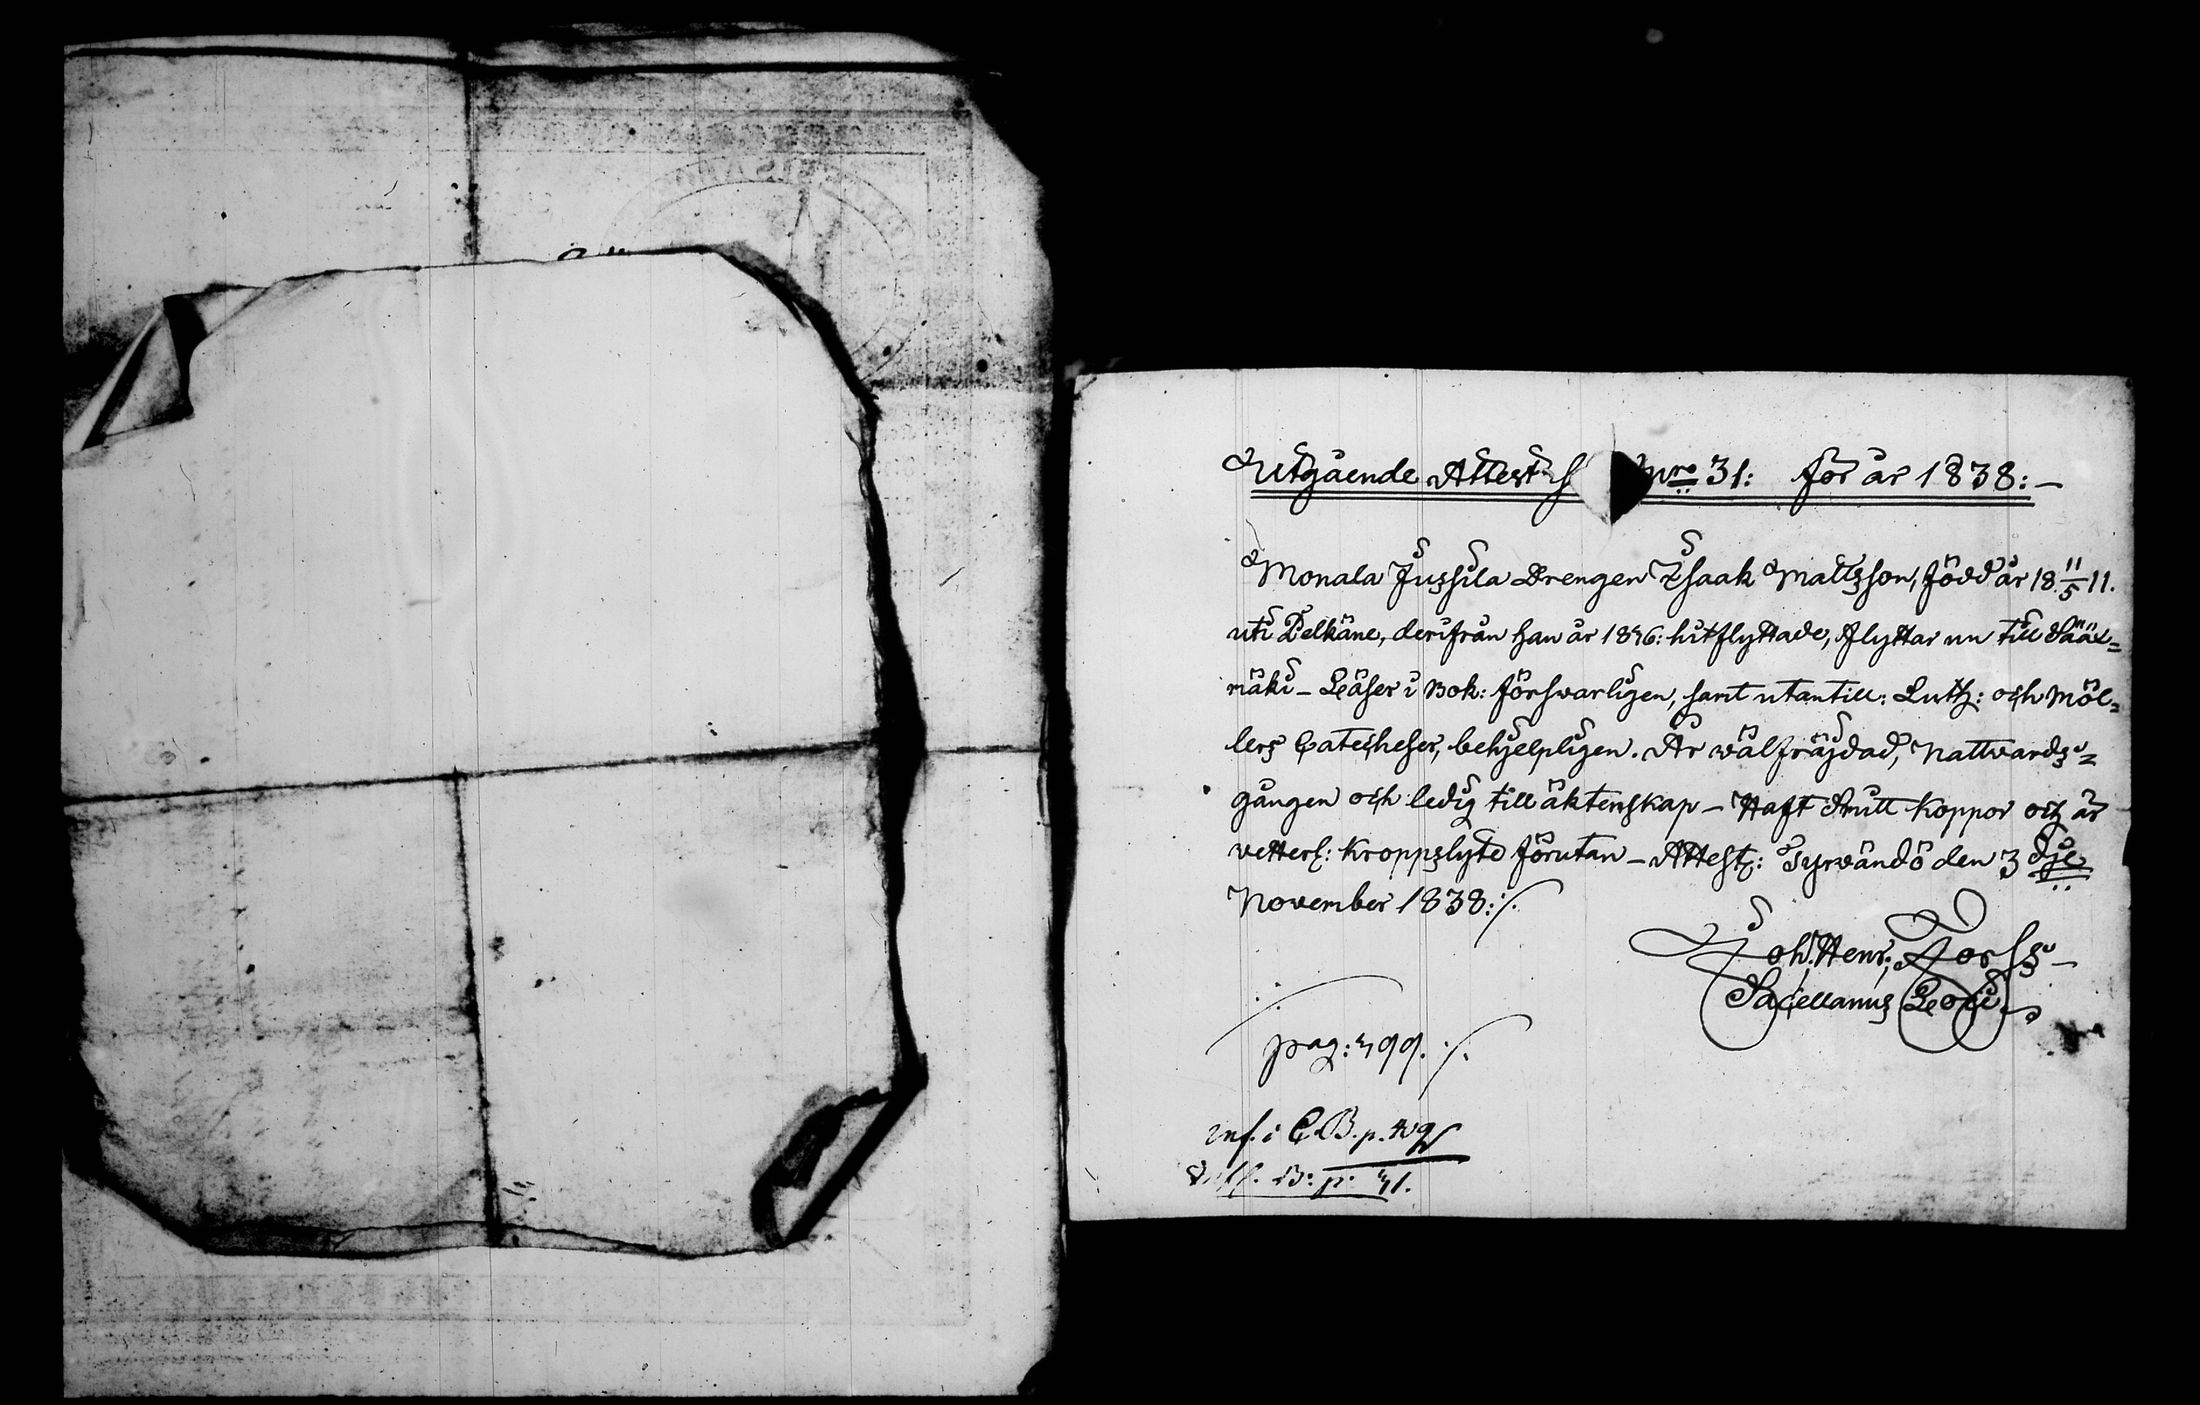 Utgående Attest Nro 31: för år 1838:-
Monala Jussila Drengen Isaak Mattsson, född år 18 11/5 11.
uti Pelkäne, derifrån han år 1836: hitflyttade, flyttar nu till Sääx=
mäki - Läser i Bok: försvarligen, samt utantill: Luth: och Möl=
lers Catecheser, behjelpligen. Är välfräjdad, Nattvards=
gången och ledig till äktenskap - Haft Skutt Koppor och är
vetterl: Kroppslyte förutan - Attest: Tyrvändö den 3 dje
November 1838:/.
Joh: Henr: Forss
Sacellanus Loci
pag: 399. /.
Inf. i C.B. p.
B: p. 31.